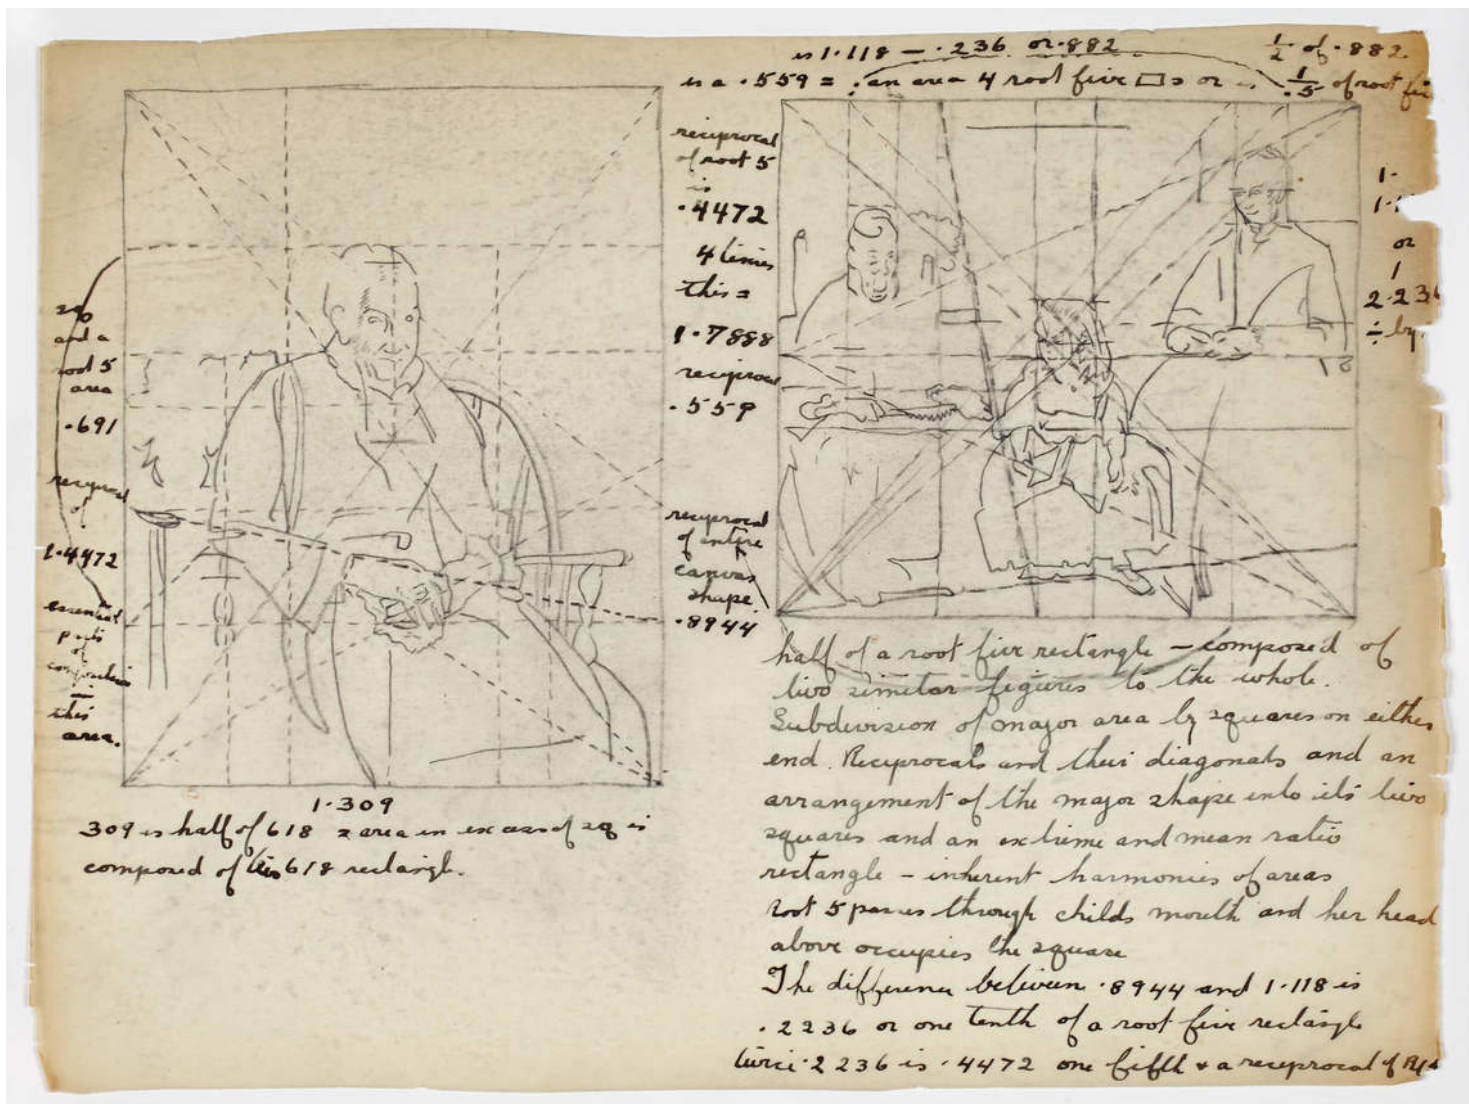 is 1.118 — .236 or .882 ½ of .882.
is a .559 = : an area 4 root five □s or 1/.5 of root
reciprocal
of root 5
is
.4472
4 times
this =
1.7888
reciprocal
.559
reciprocal
of entire
canvas
shape
.8944
1.
or
1
2.236
÷ by
12
and a
root 5
area
.691
reciprocal
of
1.4472
essential
parts
of
composition
—
this
area.
1.309
309 is half of 618 area in excess of sq is
composed of 618 rectangle.
half of a root five rectangle — composed of
two similar figures to the whole.
Subdivision of major area by squares on either
end. Reciprocals and their diagonals and an
arrangement of the major shape into its two
squares and an extreme and mean ratio
rectangle — inherent harmonies of areas
root 5 passes through childs mouth and her head
above occupies the square
The difference between .8944 and 1.118 is
.2236 or one tenth of a root five rectangle
twice .2236 is .4472 one fifth & a reciprocal of